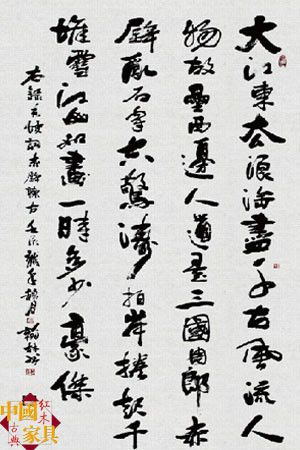 大江東去浪淘盡千古風流人
物故壘西邊人道是三國周郎赤
壁亂石穿空驚濤拍岸捲起千
堆雪江山如畫一時多少豪傑
詞赤壁懷古
中國
红木
古典
家具